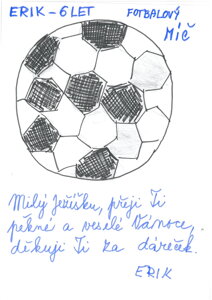 ERIK – 6 LET FOTBALOVÝ
MÍČ
Milý Ježíšku, přeji Ti
pěkné a veselé Vánoce,
děkuji Ti za dáreček.
ERIK